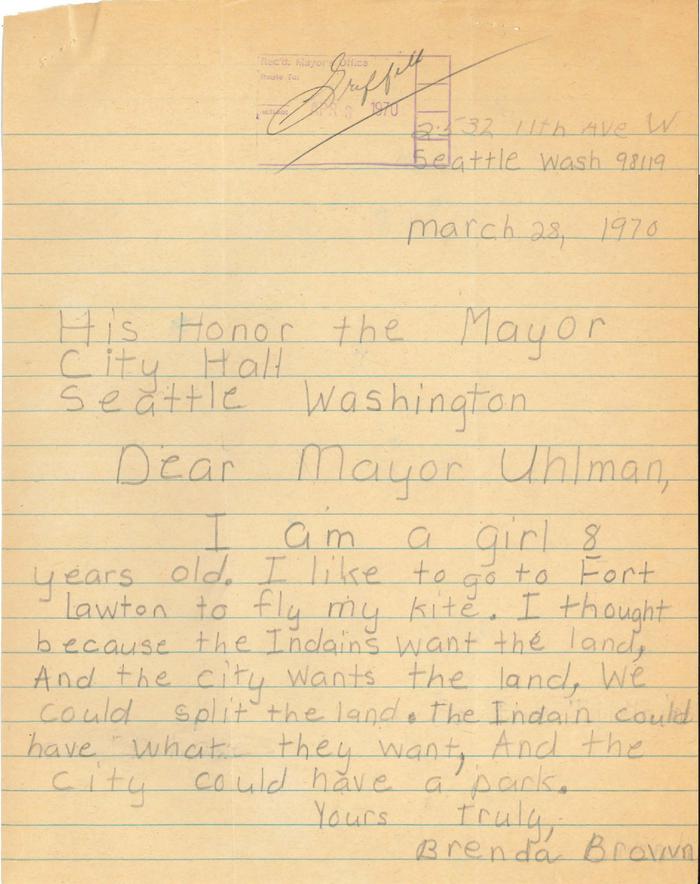 Rec'd. Mayor's Office
Route To:
Griffith
APR 3 1970
2532 11th Ave W
Seattle Wash 98119
march 28, 1970
His Honor the Mayor
City Hall
Seattle Washington
Dear Mayor Uhlman,
I am a girl 8
years old. I like to go to Fort
Lawton to fly my kite. I thought
because the Indains want the land,
And the city wants the land, We
could split the land. The Indain could
have what they want, And the
city could have a park.
Yours Truly,
Brenda Brown